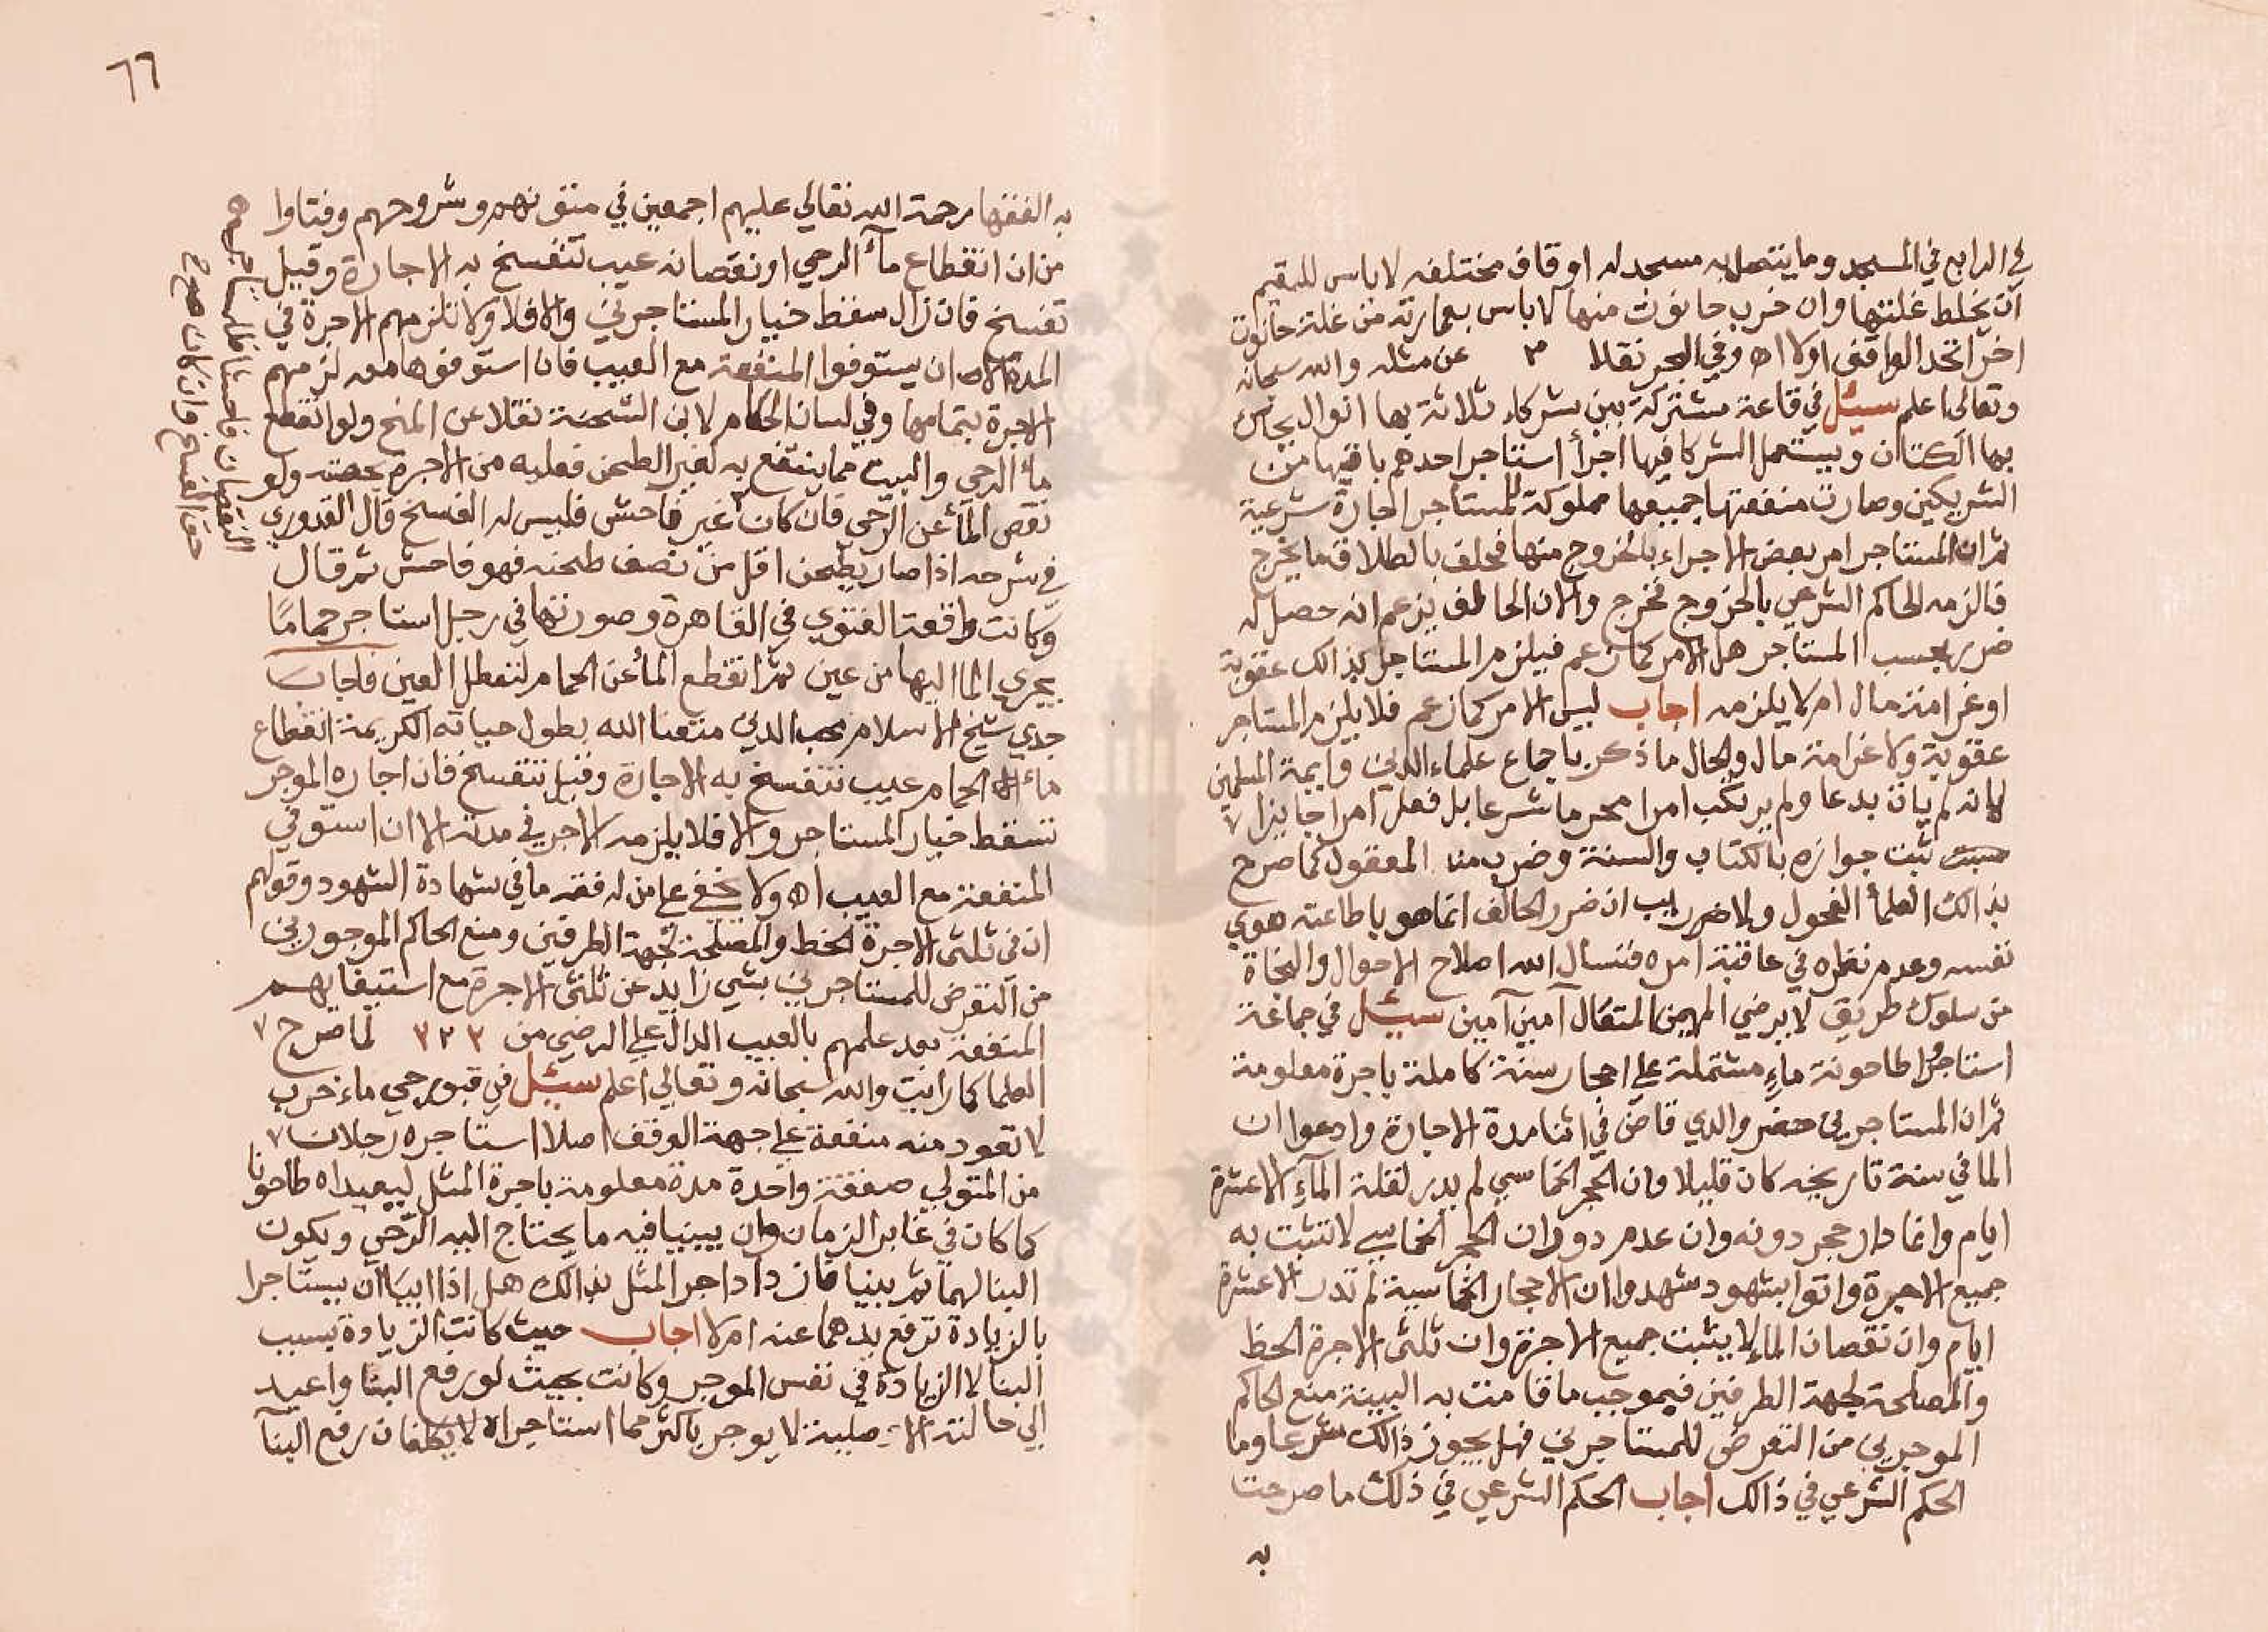 في الرابع في المسجد وما يتصل به مسجد له اوقاف مختلفه لاباس للقيم
ان يخلط غلتها وان خرب حانوت منها لاباس بعمارته من غلة حانوت
اخر اتحد الواقف اولا اه وفي البحر نقلا ٣ عن مثله والله سبحانه
وتعالى اعلم سيئل في قاعة مشتركة بين شركاء ثلاثة بها انوال يحاك
بها الكتان ويستعمل الشركا فيها اجرأ استاجر احدهم باقيها من
الشريكين وصارت منفعتها جميعها مملوكة للمستاجر اجارة شرعية
ثم ان المستاجر امر بعض الاجراء بالخروج منها فحلف بالطلاق ما يخرج
فالزمه الحاكم الشرعي بالخروج فخرج والان الحالف يزعم انه حصل له
ضرر بسبب المستاجر هل الامر كما زعم فيلزم المستاجر بذالك عقوبة
او غرامة مال ام لا يلزمه اجاب ليس الامر كما زعم فلا يلزم المستاجر
عقوبة ولا غرامة مال والحال ما ذكر باجماع علماء الدين وايمة المسلمين
لانه لم يات بدعا ولم يرتكب امرا محرما شرعا بل فعل امرا جايزا ٧
ثبت جوازه بالكتاب والسنة وضرب من المعقول كما صرح
بذالك العلمأ الفحول ولا ضرر ان ضرر الحالف انما هو باطاعته هوي
نفسه وعدم نظره في عاقبة امره فنسال الله اصلاح الاحوال والنجاة
من سلوك طريق لا يرضي المهيمن المتعال آمين آمين سيئل في جماعة
استاجروا طاحونة ماءٍ مشتملة علي احجار سنة كاملة باجرة معلومة
ثم ان المستاجرين حضر والدي قاض في اثنا مدة الاجارة وادعوا ان
الما في سنة تاريخه كان قليلا وان الحجر الخماسي لم يدر لقلة المآءِ الا عشرة
ايام وانما دار حجر دونه وان عدم دوران الحجر الخماسي لا تثبت به
جميع الاجرة واتوا بشهود شهدوا ان الاحجار الخماسية لم تدر الا عشرة
ايام وان نقصان الماء لا يثبت جميع الاجرة وان ثلثي الاجرة الحظ
والمصلحة لجهة الطرفين فبموجب ما قامت به البينة منع الحاكم
الموجرين من التعرض للمستاجرين فهل يجوز ذالك شرعا وما
الحكم الشرعي في ذالك اجاب الحكم الشرعي في ذلك ما صرحت
به
٦٦
به الفقها رحمة الله تعالي عليهم اجمعين في متونهم وشروحهم وفتاوا
من ان انقطاع مآء الرحي او نقصانه عيب تنفسخ به الاجارة وقيل
تفسخ فان زال سقط خيار المستاجرين والا فلا ولا تلزمهم الاجرة في
المدة الا ان يستوفوا المنفعة مع العيب فان استوفوها معه لزمهم
الاجرة بتمامها وفي لسان الحكام لابن الشحنة نقلا عن المنح ولو انقطع
مأ الرحي والبيت مما ينتفع به لغير الطحن فعليه من الاجرة بحصته ولو
نقص المأ عن الرحي فان كان غير فاحش فليس له الفسخ قال القدوري
في شرحه اذا صار يطحن اقل من نصف طحنه فهو فاحش ثم قال
وكانت واقعة الفتوي في القاهرة وصورتها في رجل استاجر حمامًا
يجري الما اليها من عين ثم انقطع المأ عن الحمام لتعطل العين فاجاب
جدي شيخ الاسلام محب الدين متعنا الله بطول حياته الكريمة انقطاع
ماء الحمام عيب تنفسخ به الاجارة وقيل تنفسخ فان اجاره الموجر
تسقط خيار المستاجر والا فلا يلزمه الاجر في مدته الا ان استوفي
المنفعة مع العيب اه ولا يخفي علي من له فقه ما في شهادة الشهود وقولهم
ان في ثلثي الاجرة الحظ والمصلحة لجهة الطرفين ومنع الحاكم الموجورين
من التعرض للمستاجرين بشي زايد عن ثلثي الاجرة مع استيفايهم
المنفعة بعد علمهم بالعيب الدال علي الرضي من ٣٢٣ لما صرح ٧
العلما كما رايت والله سبحانه وتعالي اعلم سيئل في قبو رحي ماء خرب
لا تعود منه منفعة علي جهة الوقف اصلا استاجره رجلان ٧
من المتولي صفقة واحدة مدة معلومة باجرة المثل ليعيداه طاحونا
كما كان في غابر الزمان وان يبنيا فيه ما يحتاج اليه الرحي ويكون
البنا لهما ثم بنيا فان زاد اجر المثل بذالك هل اذا ابيا ان يستاجرا
بالزيادة ترفع يدهما عنه ام لا اجاب حيث كانت الزيادة بسبب
البنا لا الزيادة في نفس الموجر وكانت بحيث لو رفع البنا واعيد
الي حالته الاصلية لا يوجر باكثر مما استاجراه لا يكلفان رفع البنا
النقصان فاحشا فللمستاجر
حق الفسخ وان كان صح